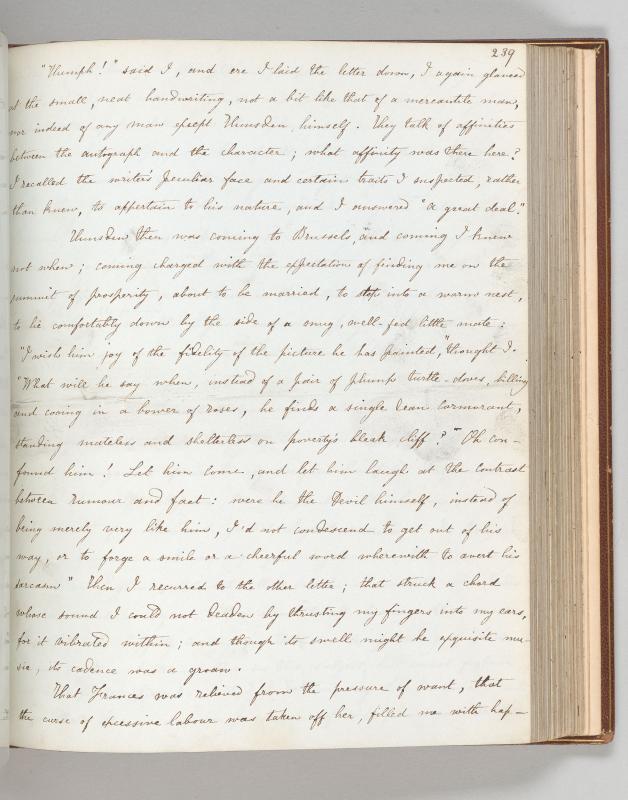 239
"Humph!" said I, and ere I laid the letter down, I again glanced
at the small, neat handwriting, not a bit like that of a mercantile man,
nor indeed of any man except Hunsden himself. They talk of affinities
between the autograph and the character; what affinity was there here?
I recalled the writer's peculiar face and certain traits I suspected, rather
than knew, to appertain to his nature, and I answered "a great deal."
Hunsden then was coming to Brussels, and coming I knew
not when; coming charged with the expectation of finding me on the
summit of prosperity, about to be married, to step into a warm nest,
to lie comfortably down by the side of a snug, well-fed little mate:
"I wish him joy of the fidelity of the picture he has painted," thought I.
"What will he say when, instead of a pair of plump turtle-doves, billing
and cooing in a bower of roses, he finds a single lean cormorant,
standing mateless and shelterless on poverty's bleak cliff?" Oh con-
found him! Let him come, and let him laugh at the contrast
between rumour and fact: were he the Devil himself, instead of
being merely very like him, I'd not condescend to get out of his
way, or to forge a smile or a cheerful word wherewith to avert his
sarcasm" Then I recurred to the other letter; that struck a chord
whose sound I could not deaden by thrusting my fingers into my ears,
for it vibrated within; and though its swell might be exquisite mu-
sic, its cadence was a groan.
That Frances was relieved from the pressure of want, that
the curse of excessive labour was taken off her, filled me with hap-